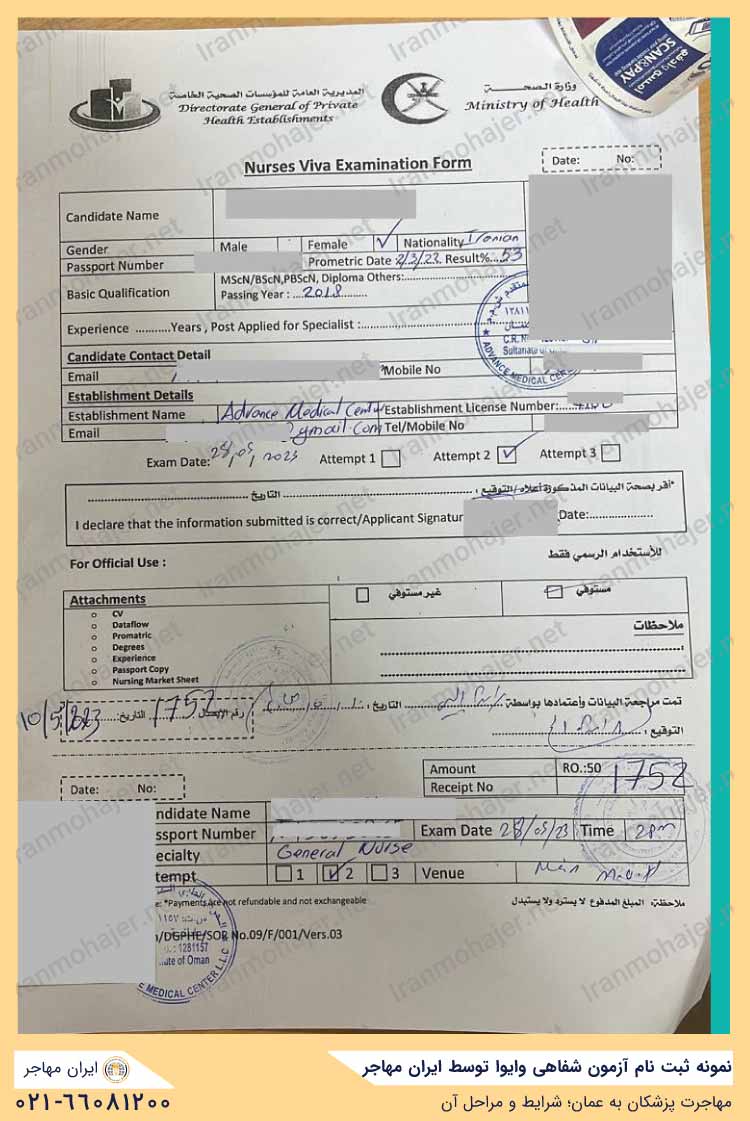 امسح وادفع
SCAN&PAY
المديرية العامة للمؤسسات الصحية الخاصة
Directorate General of Private
Health Establishments
وزارة الصحـــة
Ministry of Health
Nurses Viva Examination Form
Date: No:
Candidate Name
Gender Male Female ✓ Nationality Iranian
Passport Number Prometric Date :2/3/23. Result%...53
Basic Qualification MScN/BScN,PBScN, Diploma Others:
Passing Year : ..2018
Experience ...........Years , Post Applied for Specialist :
Candidate Contact Detail
Email Mobile No
Establishment Details
Establishment Name Advance Medical Center Establishment License Number:
Email @gmail.com Tel/Mobile No
Exam Date: 28/05/2023 Attempt 1 Attempt 2 ✓ Attempt 3
*أقر بصحة البيانات المذكورة أعلاه/التوقيع : التاريخ
I declare that the information submitted is correct/Applicant Signatur Date:
For Official Use : للأستخدام الرسمي فقط
Attachments
CV
Dataflow
Promatric
Degrees
Experience
Passport Copy
Nursing Market Sheet
غير مستوفي مستوفي
ملاحظات
تمت مراجعة البيانات وأعتمادها بواسطة التاريخ :
رقم الايصال 1752 التاريخ: 10/5/2023
التوقيع :
Amount RO.:50
Receipt No 1752
Date: No:
ndidate Name
ssport Number Exam Date 28/05/23 Time 2pm
ecialty General Nurse
ttempt 1 ✓ 2 3 Venue Main
e: *Payments are not refundable and not exchangeable ملاحظة: المبلغ المدفوع لا يسترد ولا يستبدل
/DGPHE/SOP No.09/F/001/Vers.03
1281157
ate of Oman
E MEDICAL CENTER L.L.C
ADVANCE MEDICAL CE
C.R.N
Sultanate of
Iranmohajer.net
نمونه ثبت نام آزمون شفاهی وایوا توسط ایران مهاجر
ایران مهاجر
مهاجرت پزشکان به عمان؛ شرایط و مراحل آن
۰۲۱-۶۶۰۸۱۲۰۰